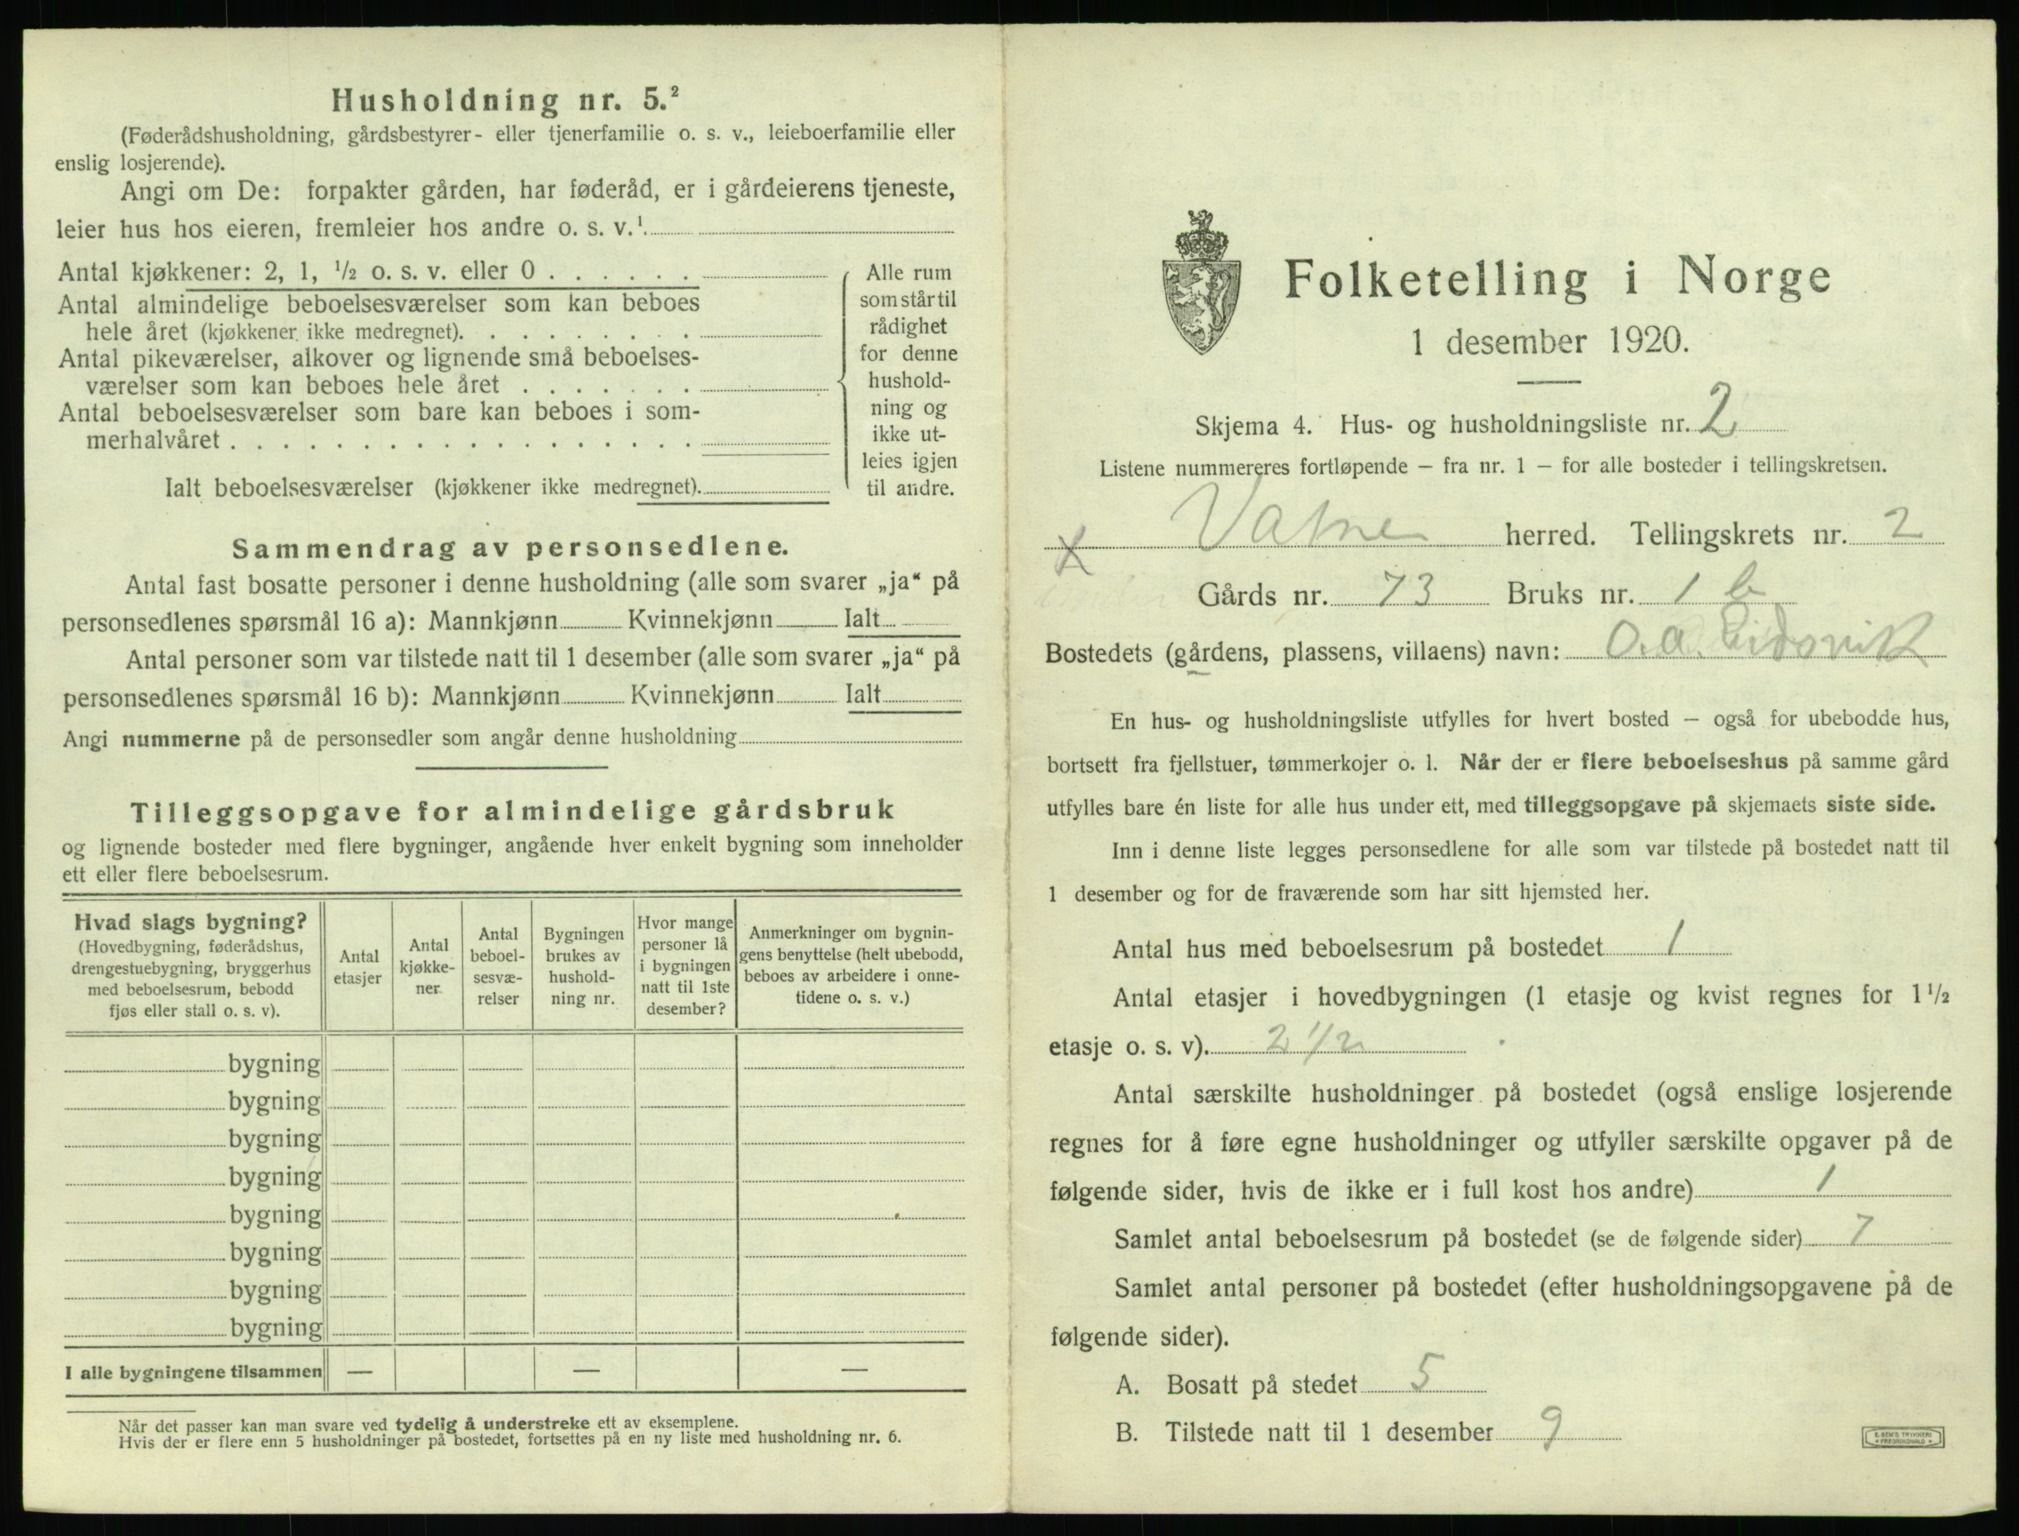 Husholdning nr. 5.²
(Føderådshusholdning, gårdsbestyrer- eller tjenerfamilie o. s. v., leieboerfamilie eller
enslig losjerende).
Angi om De: forpakter gården, har føderåd, er i gårdeierens tjeneste,
leier hus hos eieren, fremleier hos andre o. s. v.¹
Antal kjøkkener: 2, 1, ½ o. s. v. eller 0 . . . . . .
Antal almindelige beboelsesværelser som kan beboes
hele året (kjøkkener ikke medregnet). . . . . . . . .
Antal pikeværelser, alkover og lignende små beboelses-
værelser som kan beboes hele året . . . . . . .
Antal beboelsesværelser som bare kan beboes i som-
merhalvåret . . . . . . . . . . . . . . . . . .
Ialt beboelsesværelser (kjøkkener ikke medregnet).
Alle rum
som står til
rådighet
for denne
hushold-
ning og
ikke ut-
leies igjen
til andre.
Sammendrag av personsedlene.
Antal fast bosatte personer i denne husholdning (alle som svarer „ja“ på
personsedlenes spørsmål 16 a): Mannkjønn Kvinnekjønn Ialt
Antal personer som var tilstede natt til 1 desember (alle som svarer „ja“ på
personsedlenes spørsmål 16 b): Mannkjønn Kvinnekjønn Ialt
Angi nummerne på de personsedler som angår denne husholdning
Tilleggsopgave for almindelige gårdsbruk
og lignende bosteder med flere bygninger, angående hver enkelt bygning som inneholder
ett eller flere beboelsesrum.
Hvad slags bygning?
(Hovedbygning, føderådshus,
drengestuebygning, bryggerhus
med beboelsesrum, bebodd
fjøs eller stall o. s. v).
Antal
etasjer
Antal
kjøkke-
ner.
Antal
beboel-
sesvæ-
relser
Bygningen
brukes av
hushold-
ning nr.
Hvor mange
personer lå
i bygningen
natt til 1ste
desember?
Anmerkninger om bygnin-
gens benyttelse (helt ubebodd,
beboes av arbeidere i onne-
tidene o. s. v.)
bygning
bygning
bygning
bygning
bygning
bygning
bygning
bygning
I alle bygningene tilsammen — — —
Når det passer kan man svare ved tydelig å understreke ett av eksemplene.
Hvis der er flere enn 5 husholdninger på bostedet, fortsettes på en ny liste med husholdning nr. 6.
Folketelling i Norge
1 desember 1920.
Skjema 4. Hus- og husholdningsliste nr. 2
Listene nummereres fortløpende – fra nr. 1 – for alle bosteder i tellingskretsen.
x Vatne herred. Tellingskrets nr. 2
Gårds nr. 73 Bruks nr. 1 b
Bostedets (gårdens, plassens, villaens) navn: O. A. Eidsvik
En hus- og husholdningsliste utfylles for hvert bosted – også for ubebodde hus,
bortsett fra fjellstuer, tømmerkojer o. l. Når der er flere beboelseshus på samme gård
utfylles bare én liste for alle hus under ett, med tilleggsopgave på skjemaets siste side.
Inn i denne liste legges personsedlene for alle som var tilstede på bostedet natt til
1 desember og for de fraværende som har sitt hjemsted her.
Antal hus med beboelsesrum på bostedet 1
Antal etasjer i hovedbygningen (1 etasje og kvist regnes for 1½
etasje o. s. v). 2 1/2
Antal særskilte husholdninger på bostedet (også enslige losjerende
regnes for å føre egne husholdninger og utfyller særskilte opgaver på de
følgende sider, hvis de ikke er i full kost hos andre) 1
Samlet antal beboelsesrum på bostedet (se de følgende sider) 7
Samlet antal personer på bostedet (efter husholdningsopgavene på de
følgende sider).
A. Bosatt på stedet 5
B. Tilstede natt til 1 desember 9